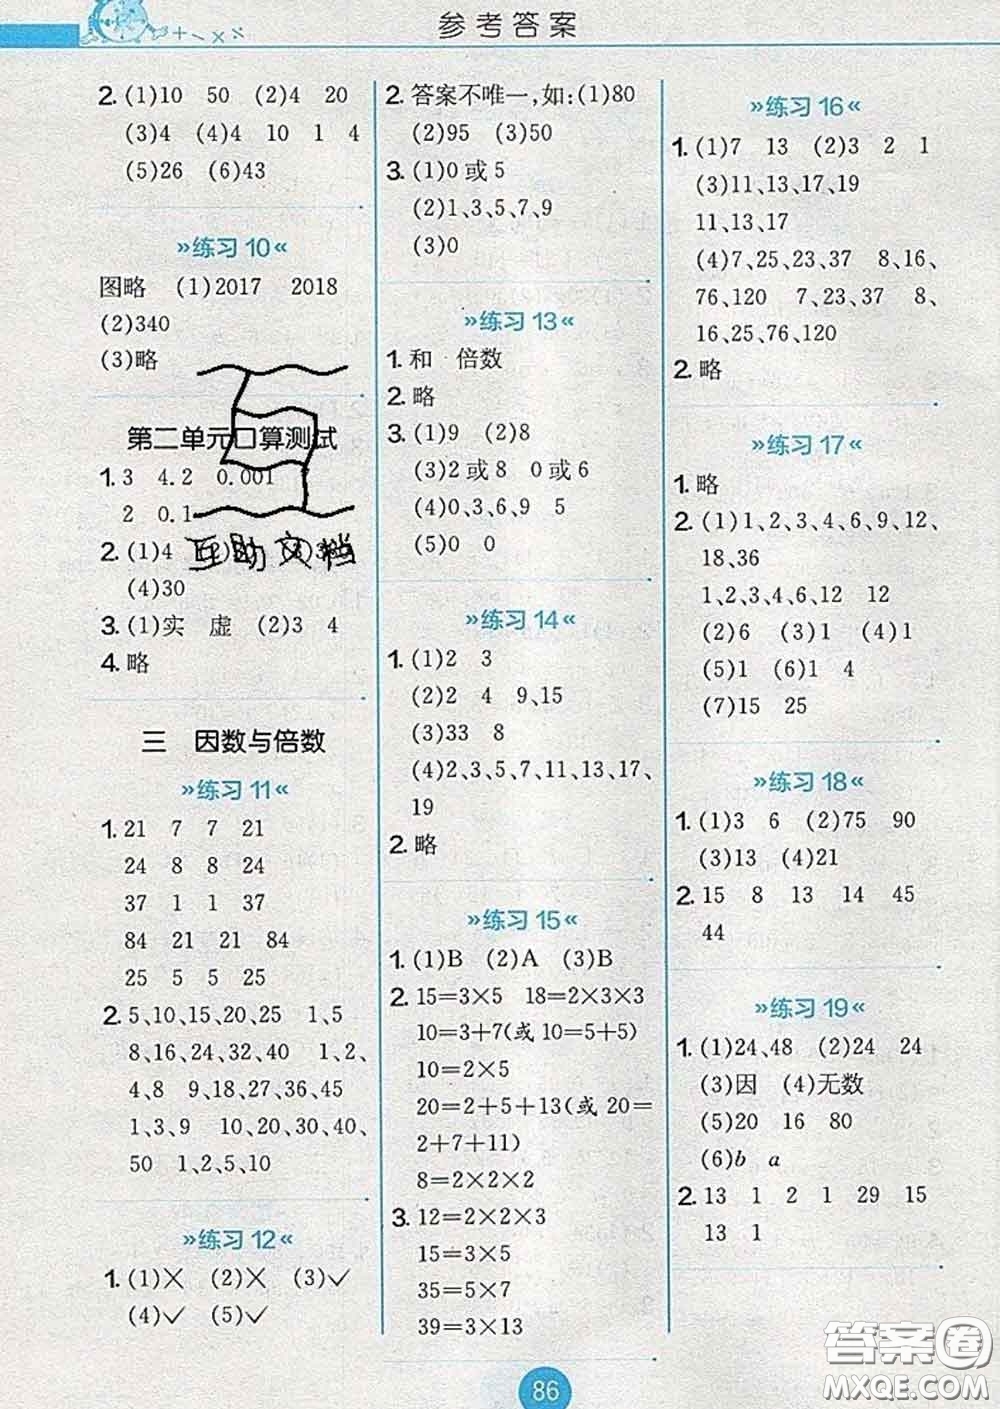 参考答案
2. (1)10 50 (2)4 20
(3)4 (4)4 10 1 4
(5)26 (6)43
»练习10«
图略 (1)2017 2018
(2)340
(3)略
第二单元口算测试
1. 3 4.2 0.001
2 0.1
2. (1)4
(4)30
3. (1)实 虚 (2)3 4
4. 略
互助文档
三 因数与倍数
»练习11«
1. 21 7 7 21
24 8 8 24
37 1 1 37
84 21 21 84
25 5 5 25
2. 5、10、15、20、25 1、5
8、16、24、32、40 1、2、
4、8 9、18、27、36、45
1、3、9 10、20、30、40、
50 1、2、5、10
»练习12«
1. (1)× (2)× (3)✓
(4)✓ (5)✓
2. 答案不唯一,如:(1)80
(2)95 (3)50
3. (1)0或5
(2)1、3、5、7、9
(3)0
»练习13«
1. 和 倍数
2. 略
3. (1)9 (2)8
(3)2或8 0或6
(4)0、3、6、9 5
(5)0 0
»练习14«
1. (1)2 3
(2)2 4 9、15
(3)33 8
(4)2、3、5、7、11、13、17、
19
2. 略
»练习15«
1. (1)B (2)A (3)B
2. 15=3×5 18=2×3×3
10=3+7(或10=5+5)
10=2×5
20=2+5+13(或20=
2+7+11)
8=2×2×2
3. 12=2×2×3
15=3×5
35=5×7
39=3×13
»练习16«
1. (1)7 13 (2)3 2 1
(3)11、13、17、19
11、13、17
(4)7、25、23、37 8、16、
76、120 7、23、37 8、
16、25、76、120
2. 略
»练习17«
1. 略
2. (1)1、2、3、4、6、9、12、
18、36
1、2、3、4、6、12 12
(2)6 (3)1 (4)1
(5)1 (6)1 4
(7)15 25
»练习18«
1. (1)3 6 (2)75 90
(3)13 (4)21
2. 15 8 13 14 45
44
»练习19«
1. (1)24、48 (2)24 24
(3)因 (4)无数
(5)20 16 80
(6)b a
2. 13 1 2 1 29 15
13 1
86
答案圈
MXQE.COM